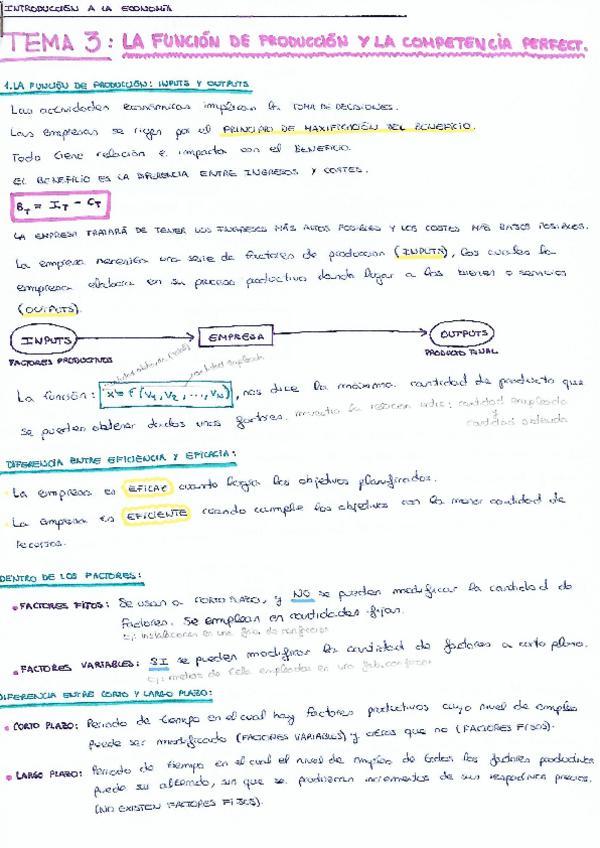 INTRODUCCIÓN A LA ECONOMÍA
TEMA 3: LA FUNCIÓN DE PRODUCCIÓN Y LA COMPETENCIA PERFECT.
1. LA FUNCIÓN DE PRODUCCIÓN: INPUTS Y OUTPUTS
Las actividades económicas implican la TOMA DE DECISIONES.
Las empresas se rigen por el PRINCIPIO DE MAXIFICACIÓN DEL BENEFICIO.
Todo tiene relación e impacta con el BENEFICIO.
EL BENEFICIO ES LA DIFERENCIA ENTRE INGRESOS Y COSTES.
B_T = I_T - C_T
LA EMPRESA TRATARÁ DE TENER LOS INGRESOS MÁS ALTOS POSIBLES Y LOS COSTES MÁS BAJOS POSIBLES.
La empresa necesita una serie de factores de producción (INPUTS), los cuales la
empresa elabora en su proceso productivo dando lugar a los bienes o servicios
(OUTPUTS).
INPUTS EMPRESA OUTPUTS
FACTORES PRODUCTIVOS PRODUCTO FINAL
cantidad empleada
La función: x = f (V₁, V₂, ..., Vn), nos dice la máxima cantidad de producto que
se pueden obtener dados unos factores. muestra la relación entre: cantidad empleada
y
cantidad obtenida
DIFERENCIA ENTRE EFICIENCIA Y EFICACIA:
La empresa es EFICAZ cuando logra los objetivos planificados.
La empresa es EFICIENTE cuando cumple los objetivos con la menor cantidad de
recursos.
DENTRO DE LOS FACTORES:
• FACTORES FIJOS: Se usan a CORTO PLAZO, y NO se pueden modificar la cantidad de
factores. Se emplean en cantidades fijas.
Ej: instalaciones en una
• FACTORES VARIABLES: SI se pueden modificar la cantidad de factores a corto plazo.
Ej: metros de tela empleados en una
DIFERENCIA ENTRE CORTO Y LARGO PLAZO:
• CORTO PLAZO: Periodo de tiempo en el cual hay factores productivos cuyo nivel de empleo
puede ser modificado (FACTORES VARIABLES) y otros que no (FACTORES FIJOS).
• LARGO PLAZO: Periodo de tiempo en el cual el nivel de empleo de todos los factores productivos
puede su alterado, sin que se produzcan incrementos de sus respectivos precios.
(NO EXISTEN FACTORES FIJOS).